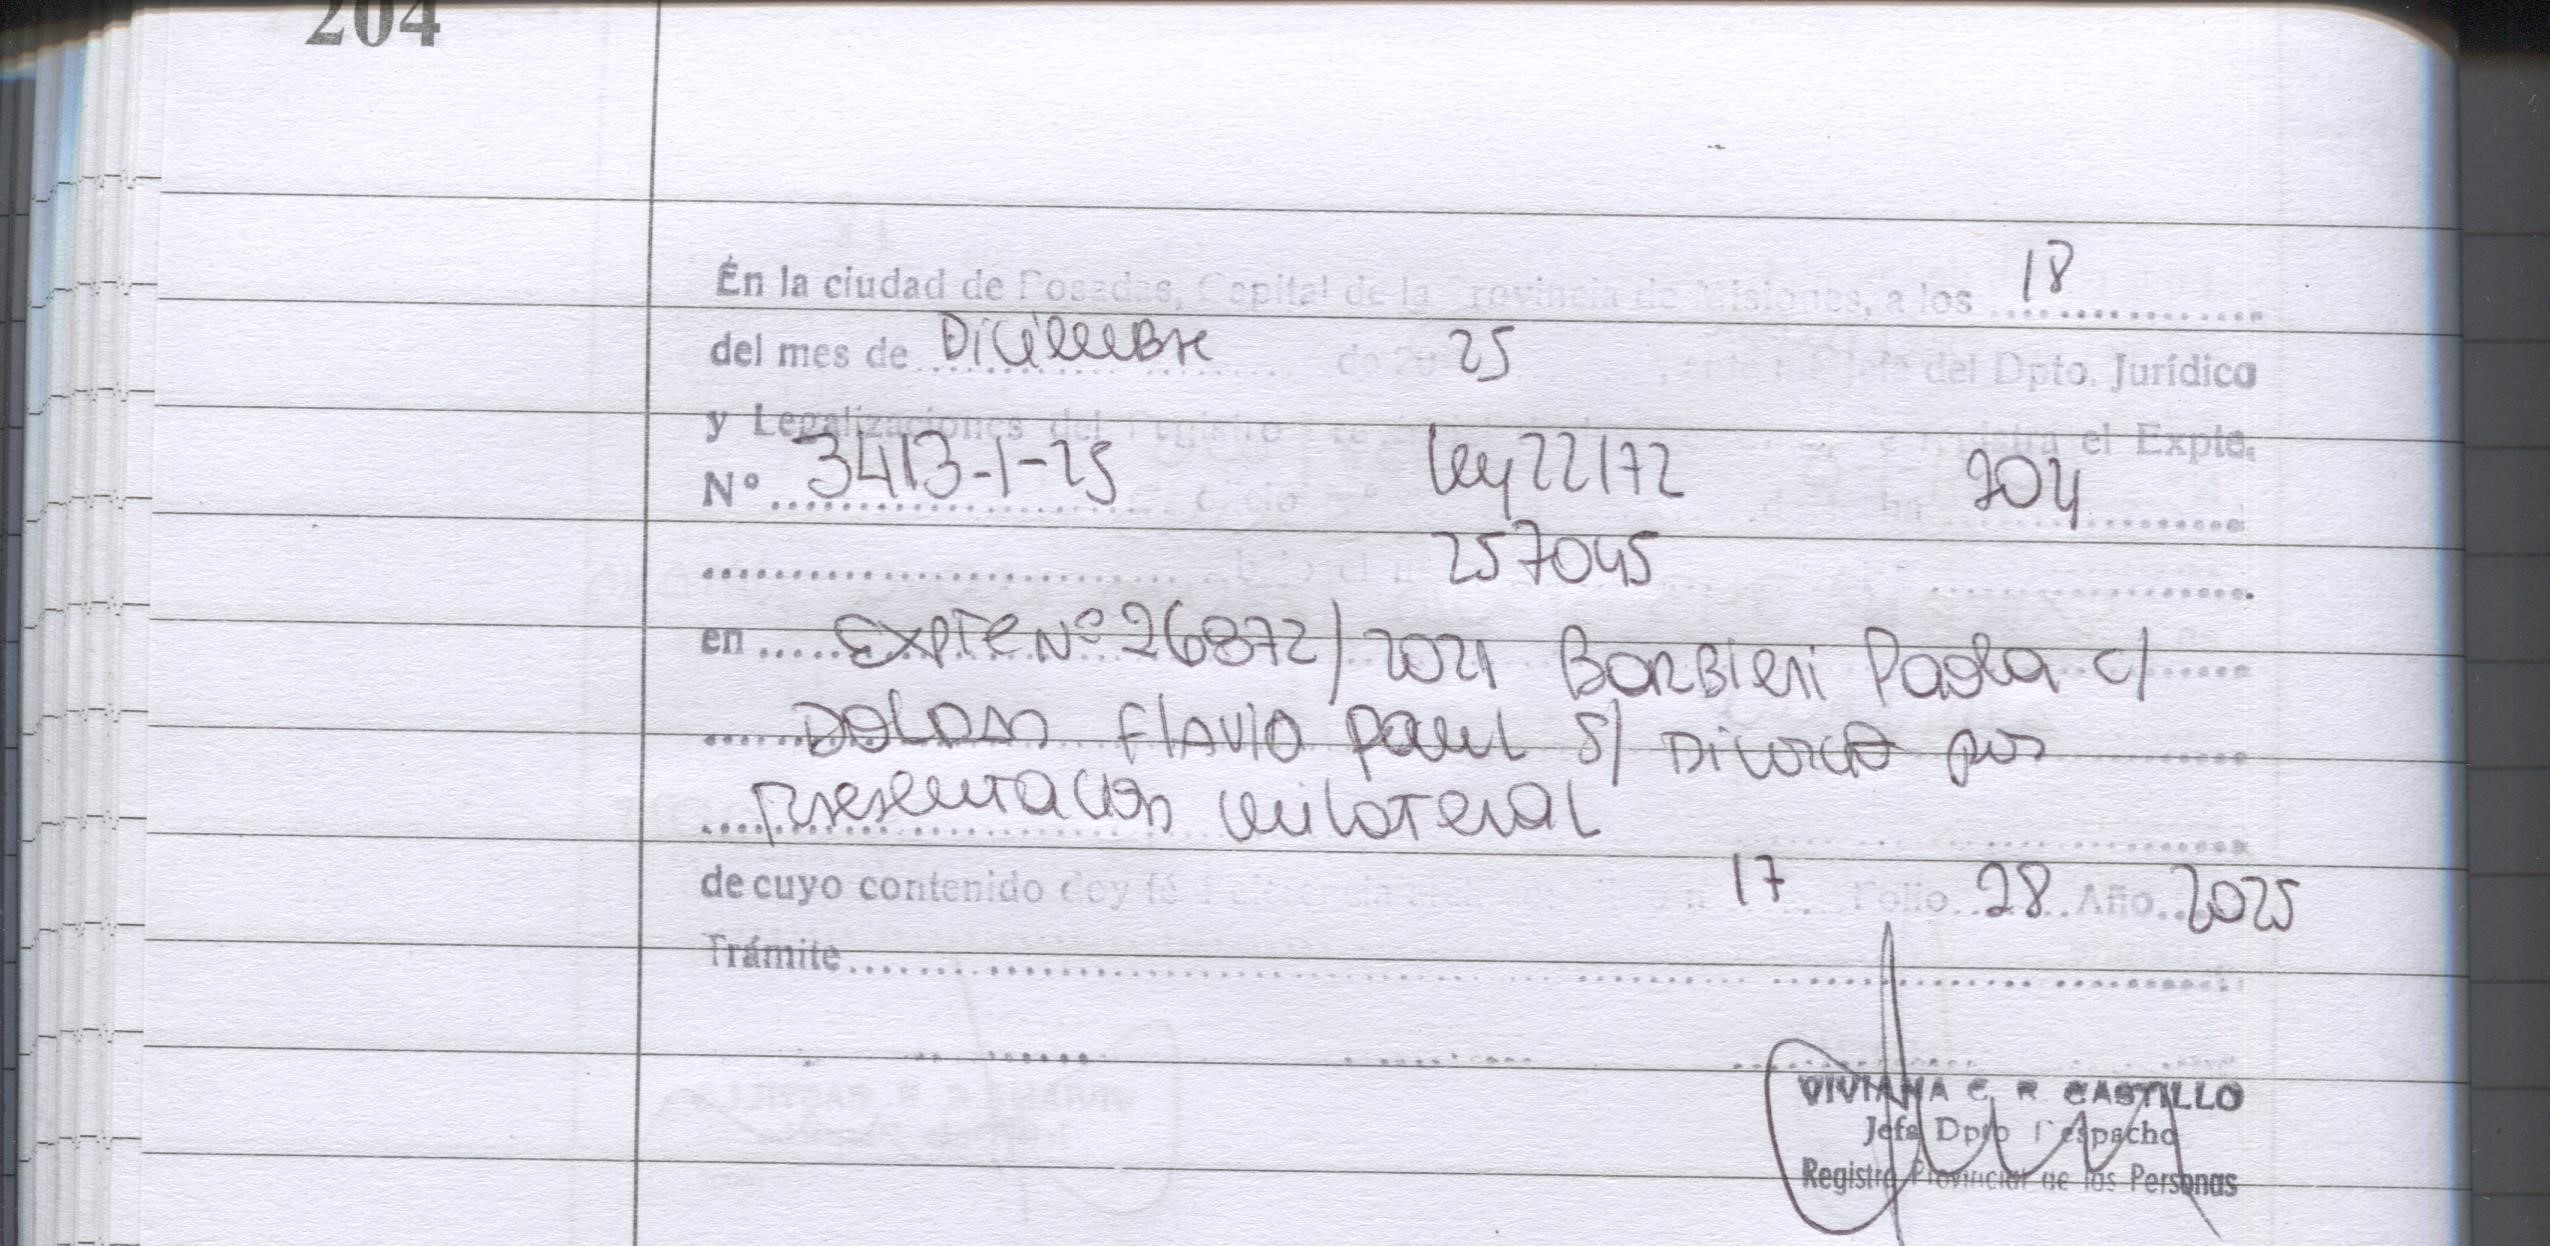 204
En la ciudad de Posadas, Capital de la Provincia de Misiones, a los 18
del mes de Diciembre de 20 25 del Dpto. Jurídico
y Legalizaciones del Registro el Expte.
Nº 3413-1-25 ley 22172 204
257045
en Expte Nº 26872/2021 Barbieri Paola c/
Dolan Flavio Paul S/ Divorcio por
presentación unilateral
de cuyo contenido doy fé 17 Folio 28 Año 2025
Trámite
VIVIANA C. R. CASTILLO
Jefa Dpto Despacho
Registro Provincial de las Personas